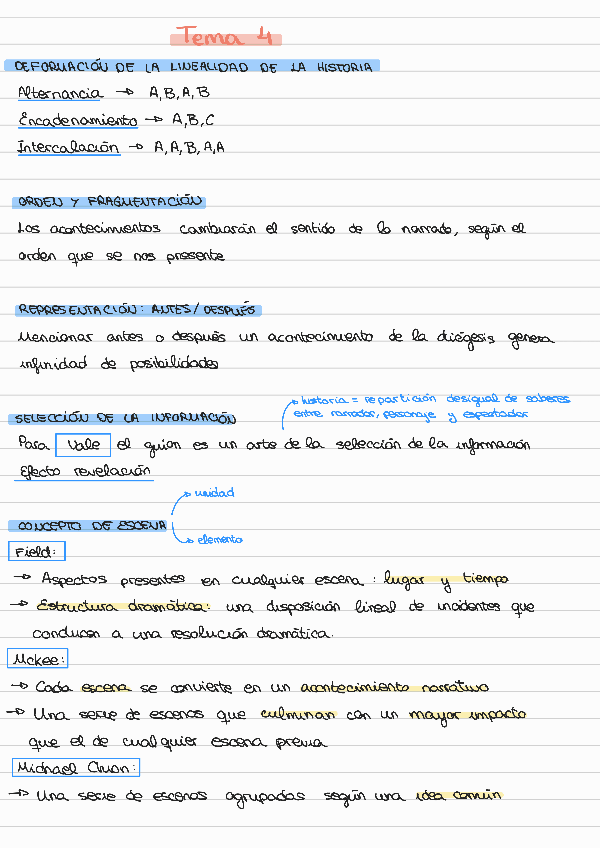 Tema 4
DEFORMACIÓN DE LA LINEALIDAD DE LA HISTORIA
Alternancia → A, B, A, B
Encadenamiento → A, B, C
Intercalación → A, A, B, A, A
ORDEN Y FRAGMENTACIÓN
Los acontecimientos cambiarán el sentido de lo narrado, según el
orden que se nos presente
REPRESENTACIÓN: ANTES / DESPUÉS
Mencionar antes o después un acontecimiento de la diégesis genera
infinidad de posibilidades
historia = repartición desigual de saberes
entre narrador, personaje y espectador
SELECCIÓN DE LA INFORMACIÓN
Para Vale el guion es un arte de la selección de la información
Efecto revelación
unidad
CONCEPTO DE ESCENA
elemento
Field:
→ Aspectos presentes en cualquier escena: lugar y tiempo
→ Estructura dramática: una disposición lineal de incidentes que
conducen a una resolución dramática.
Mckee:
→ Cada escena se convierte en un acontecimiento narrativo
→ Una serie de escenas que culminan con un mayor impacto
que el de cualquier escena previa
Michael Chion:
→ Una serie de escenas agrupadas según una idea común